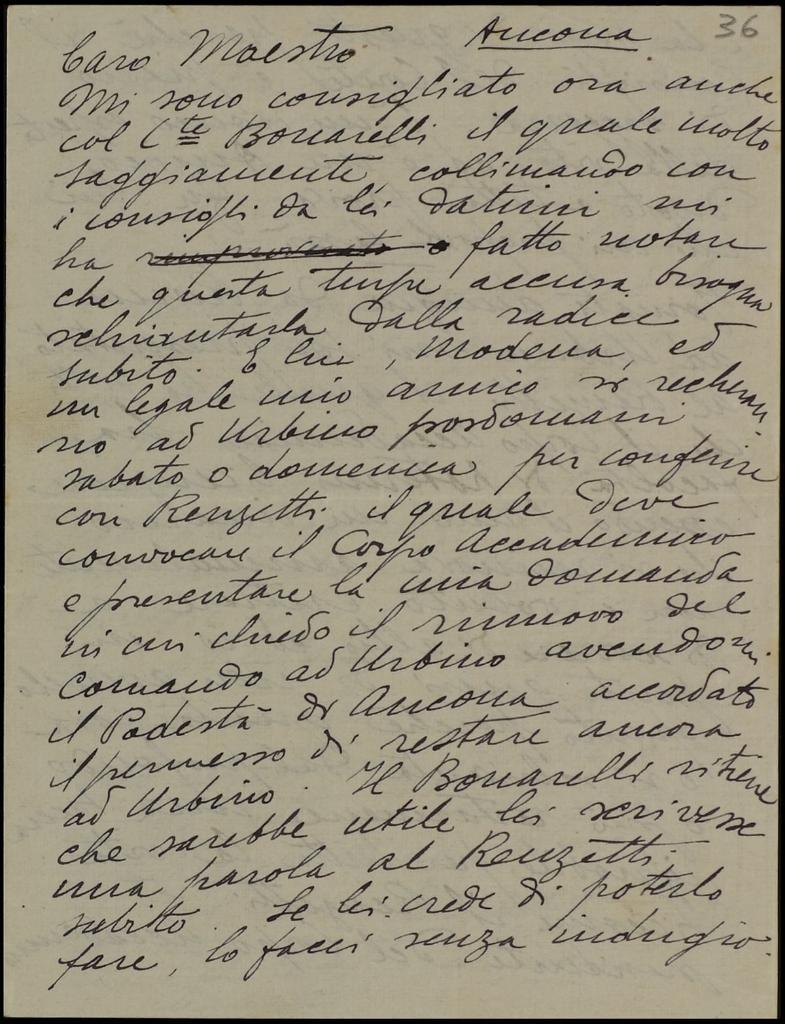 36
Ancona
Caro Maestro
Mi sono consigliato ora anche
col Cte Bonarelli il quale molto
saggiamente, collimando con
i consigli da lei datimi mi
ha rimproverato e fatto notare
che questa turpe accusa bisogna
schiantarla dalla radice
subito. E lui, Modena, ed
un legale mio amico si recheran
no ad Urbino posdomani
sabato o domenica per conferire
con Renzetti il quale deve
convocare il Corpo Accademico
e presentare la mia domanda
in cui chiedo il rinnovo del
comando ad Urbino avendomi
il Podestà di Ancona accordato
il permesso di restare ancora
ad Urbino. Il Bonarelli ritiene
che sarebbe utile lei scrivesse
una parola al Renzetti
subito. Se lei crede di poterlo
fare, lo facci senza indugio.